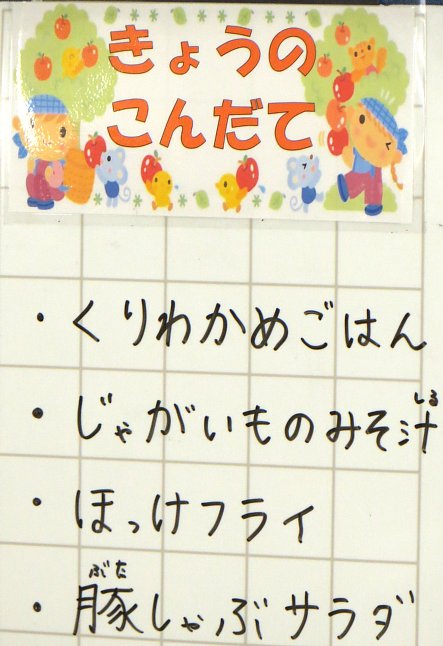 きょうの
こんだて
・くりわかめごはん
・じゃがいものみそ汁
しる
・ほっけフライ
ぶた
・豚しゃぶサラダ